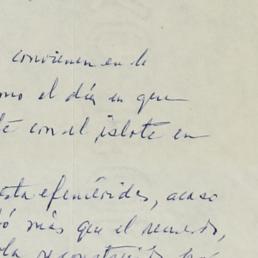 convienen en le
omo el día en que
te con el islote en
esta efemérides, acaso
ó más que el recuerdo,